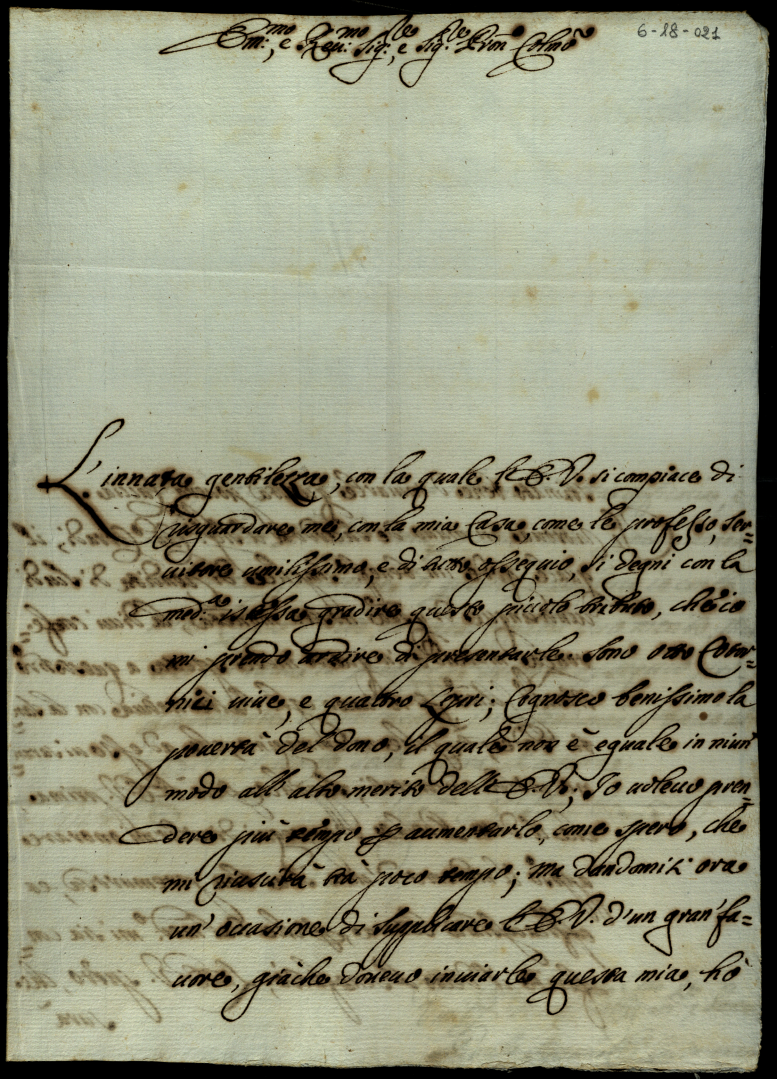 Em:mo, e Reu:mo Sig:re, e Sig:re Pron Colmo
6-18-021
L'innata gentilezza, con la quale l'E.V. si compiace di
riguardare me, con la mia Casa, come le professo, ser=
uitore umilissimo, e di tutto ossequio, si degni con la
med:a istessa gradire questo piccolo tributo, che io
mi prendo ardire di presentarle. Sono otto Cotur=
nici uiue, e quattro Lepri; Cognosco benissimo la
pouertà del dono, il quale non è eguale in niun
modo all'alto merito dell'E.V.; Io uoleuo pren=
dere più tempo p aumentarlo, come spero, che
mi riuscirà trà poco tempo; ma dandomiti ora
un'occasione di supplicare l'E.V. d'un gran fa=
uore, giache doueuo inuiarle questa mia, hò